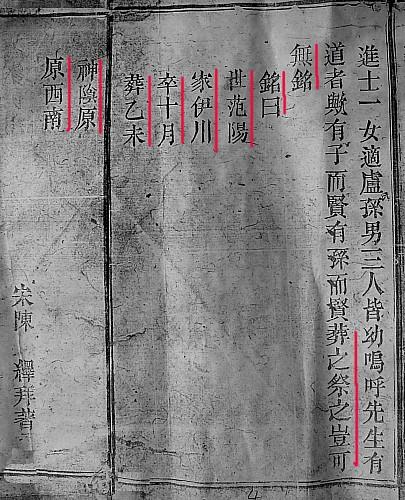 進士一女適盧孫男三人皆幼嗚呼先生有
道者歟有子而賢有孫而賢葬之祭之豈可
無銘
銘曰
世范陽
家伊川
卒十月
葬乙未
神陰原
原西南
宋陳 繹拜著
4